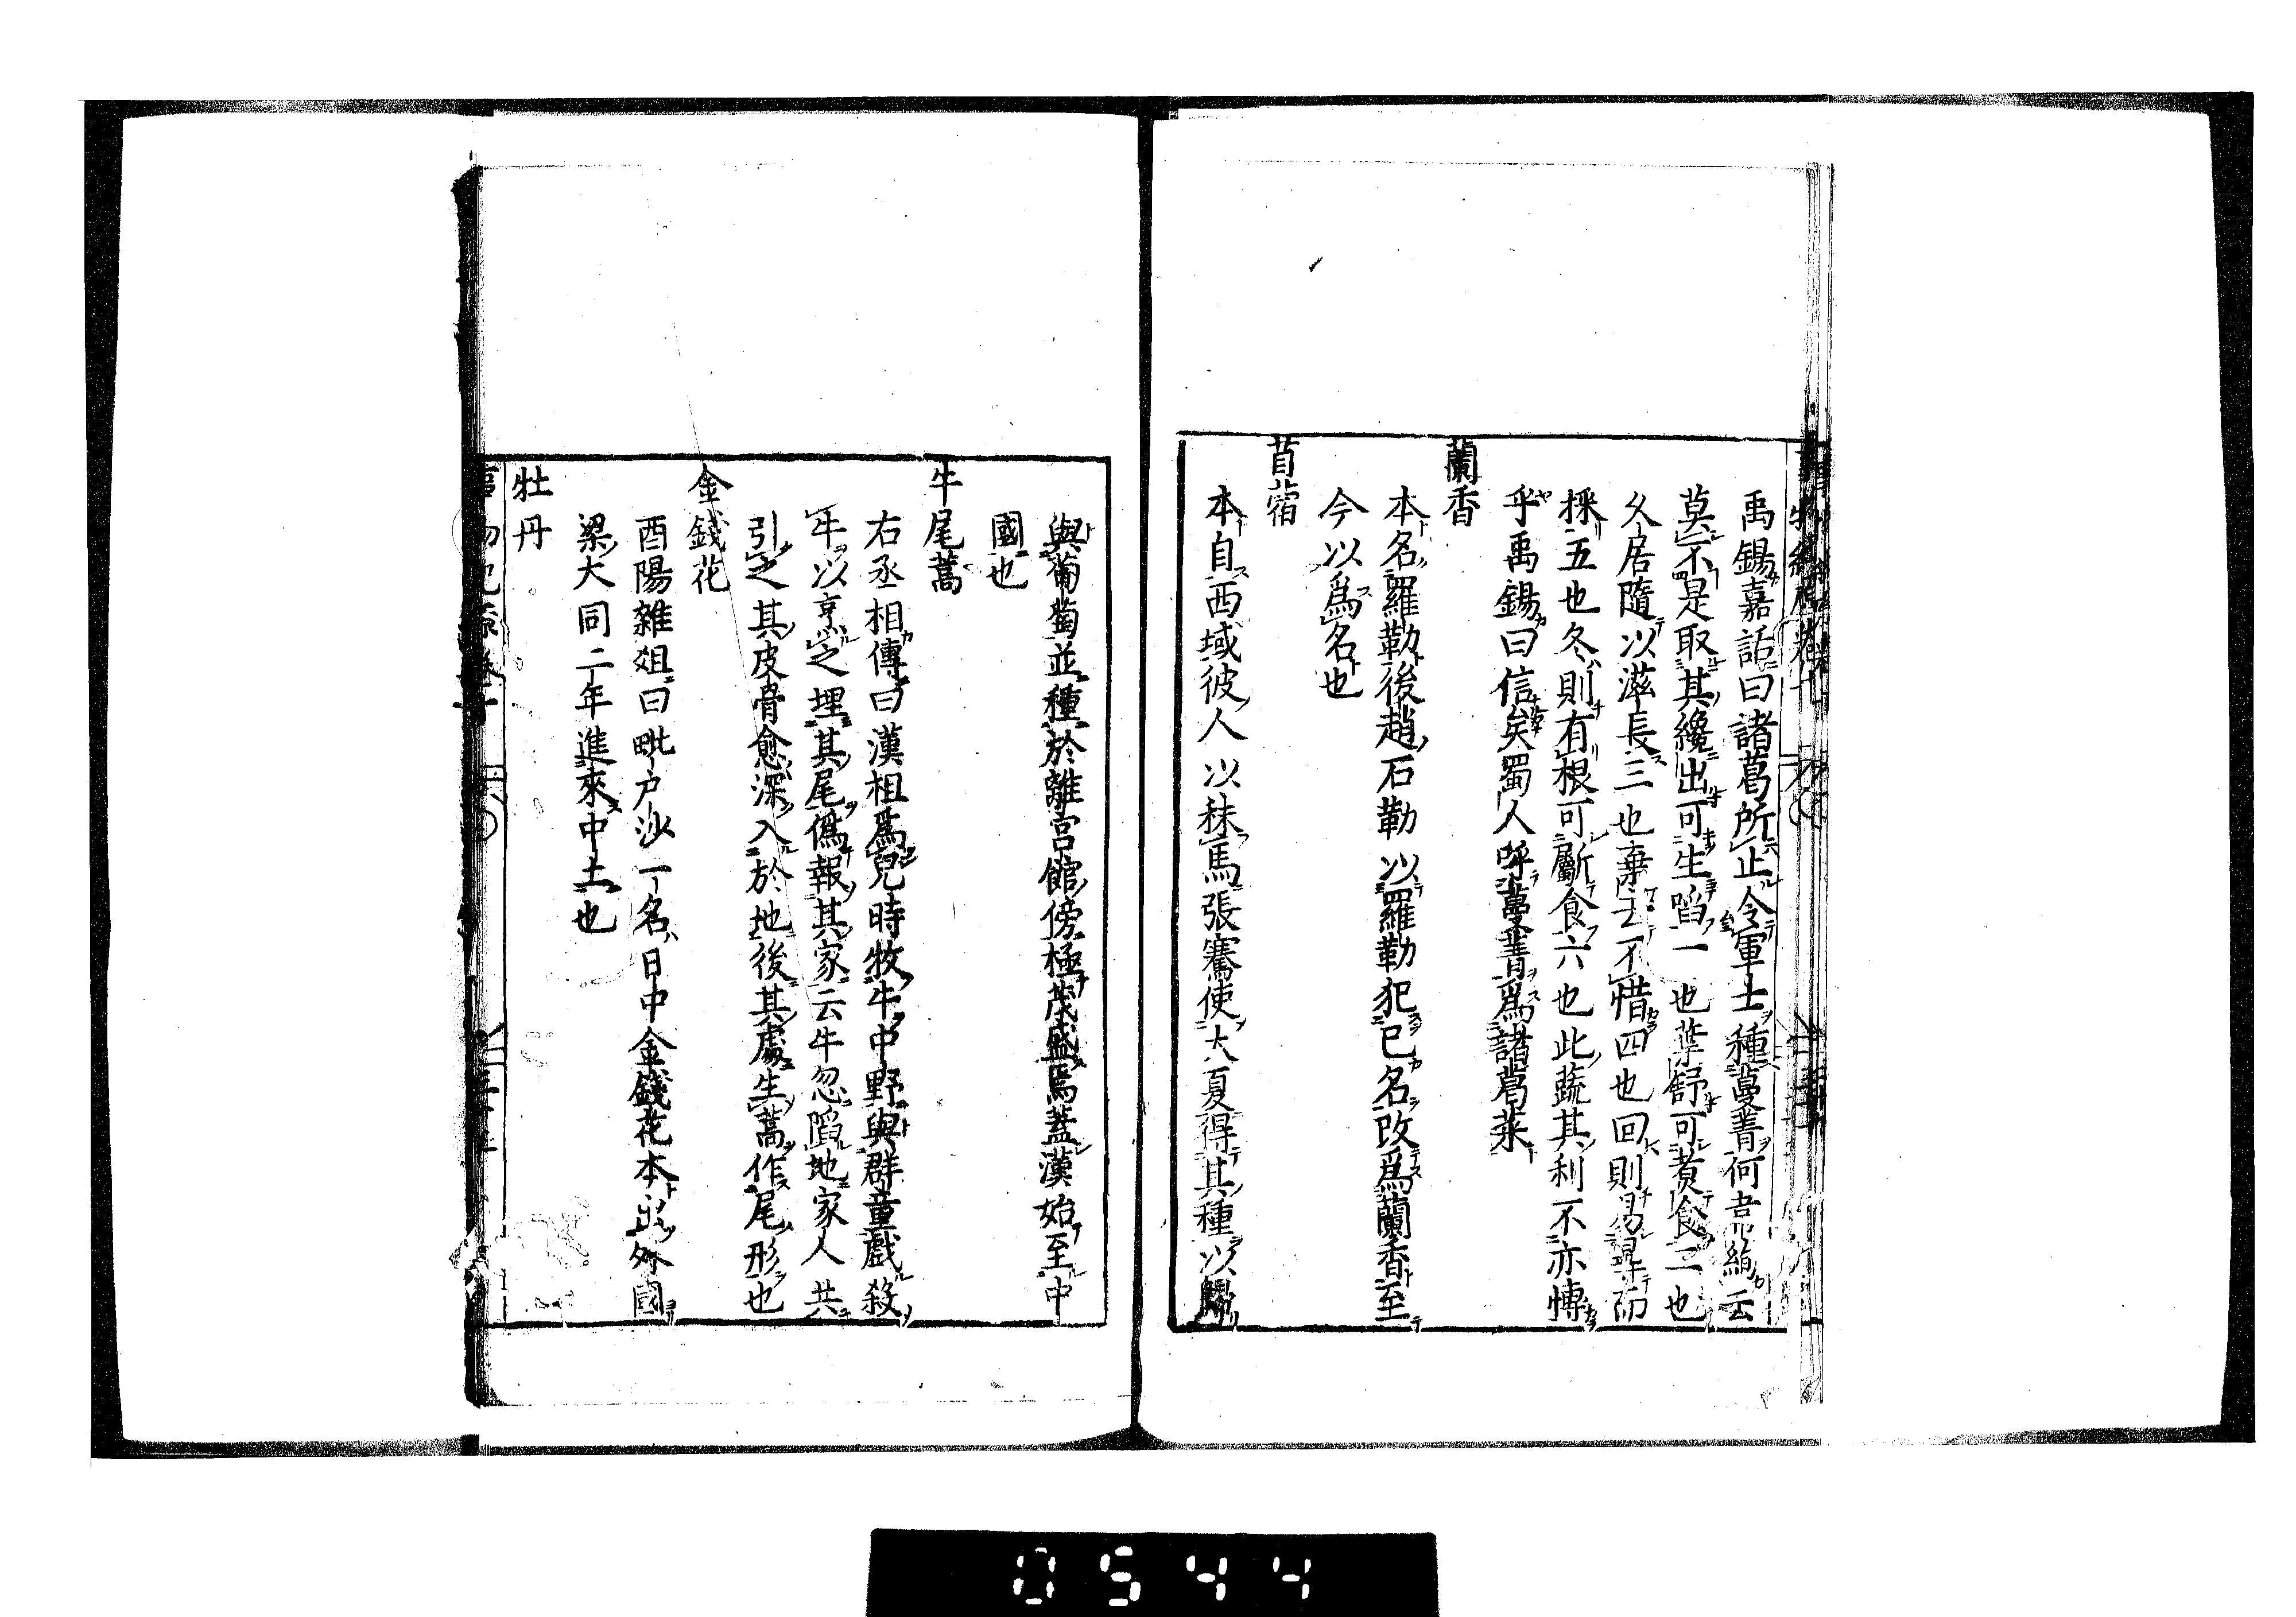 禹錫嘉話曰諸葛所止令軍士種蔓菁何韋絢云
莫不是取其纔出可生啗一也葉舒可煑食二也
久居隨以滋長三也棄去不惜四也回則易尋而
採五也冬則有根可斸食六也此蔬其利不亦愽
乎禹錫曰信矣蜀人呼蔓菁爲諸葛菜
蘭香
本名羅勒後趙石勒以羅勒犯己名改爲蘭香至
今以爲名也
苜蓿
本自西域彼人以秣馬張騫使大夏得其種以歸
與葡萄並種於離宮館傍極茂盛焉蓋漢始至中
國也
牛尾蒿
右丞相傳曰漢祖爲兒時牧牛中野與群童戲殺
牛以亨之埋其尾僞報其家云牛忽陷地家人共
引之其皮骨愈深入於地後其處生蒿作尾形也
金錢花
酉陽雜俎曰毗户沙一名日中金錢花本出外國
梁大同二年進來中土也
牡丹
0544